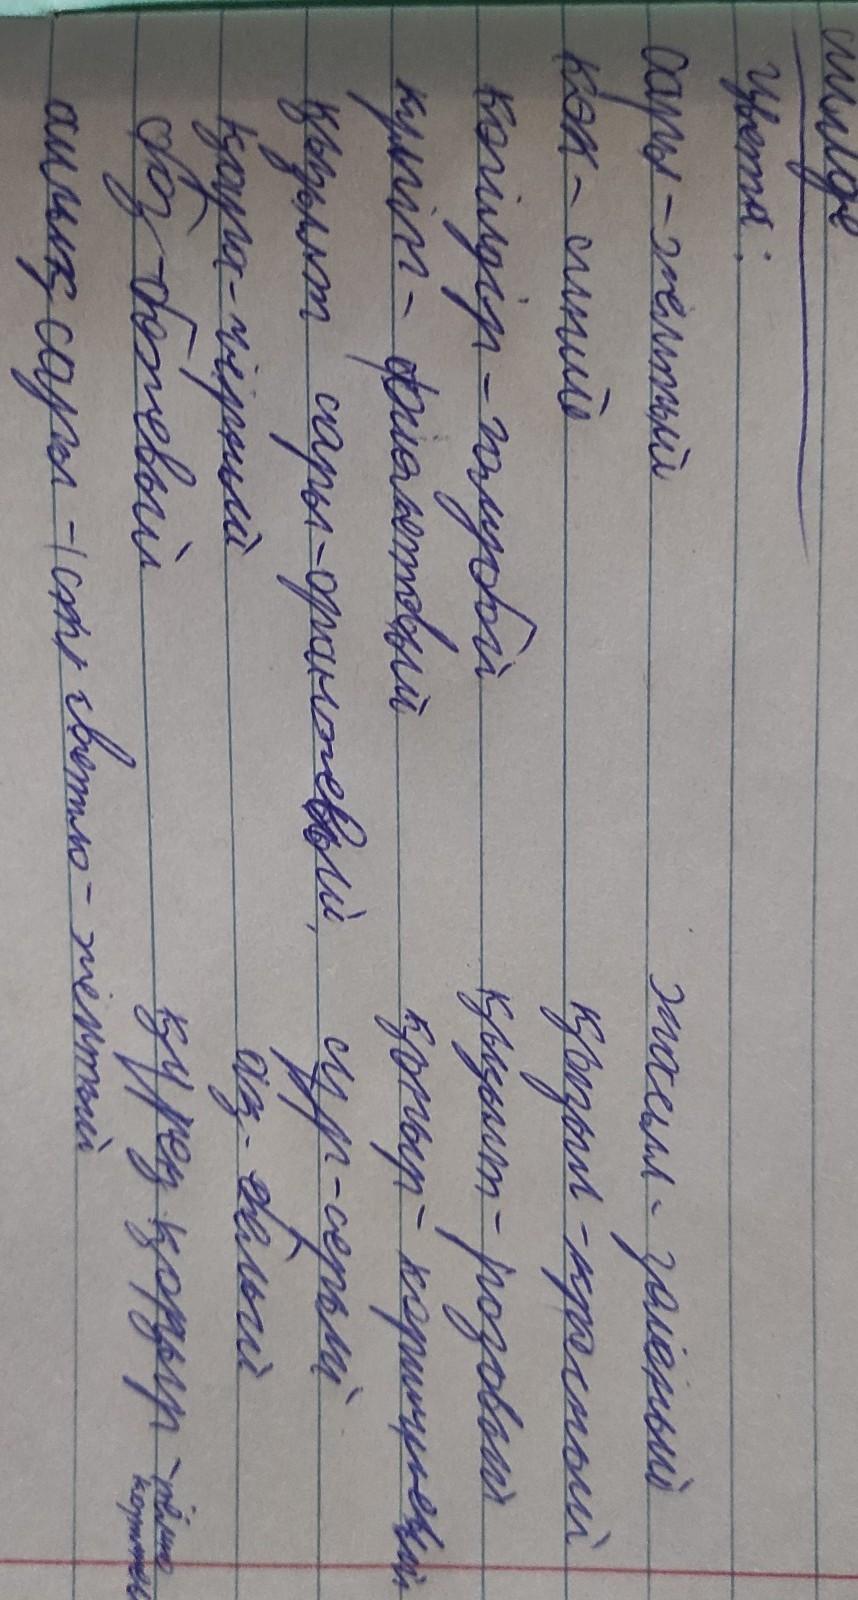 цвета:
сары - желтый жасыл - зелёный
көк - синий қызыл - красный
көгілдір - голубой қызғылт - розовый
күлгін - фиолетовый қоңыр - коричневый
қызғылт сары - оранжевый, сұр - серый
қара - чёрный ақ - белый
боз - бежевый күрең қоңыр - тёмно коричнев
ашық сары - светло - жёлтый